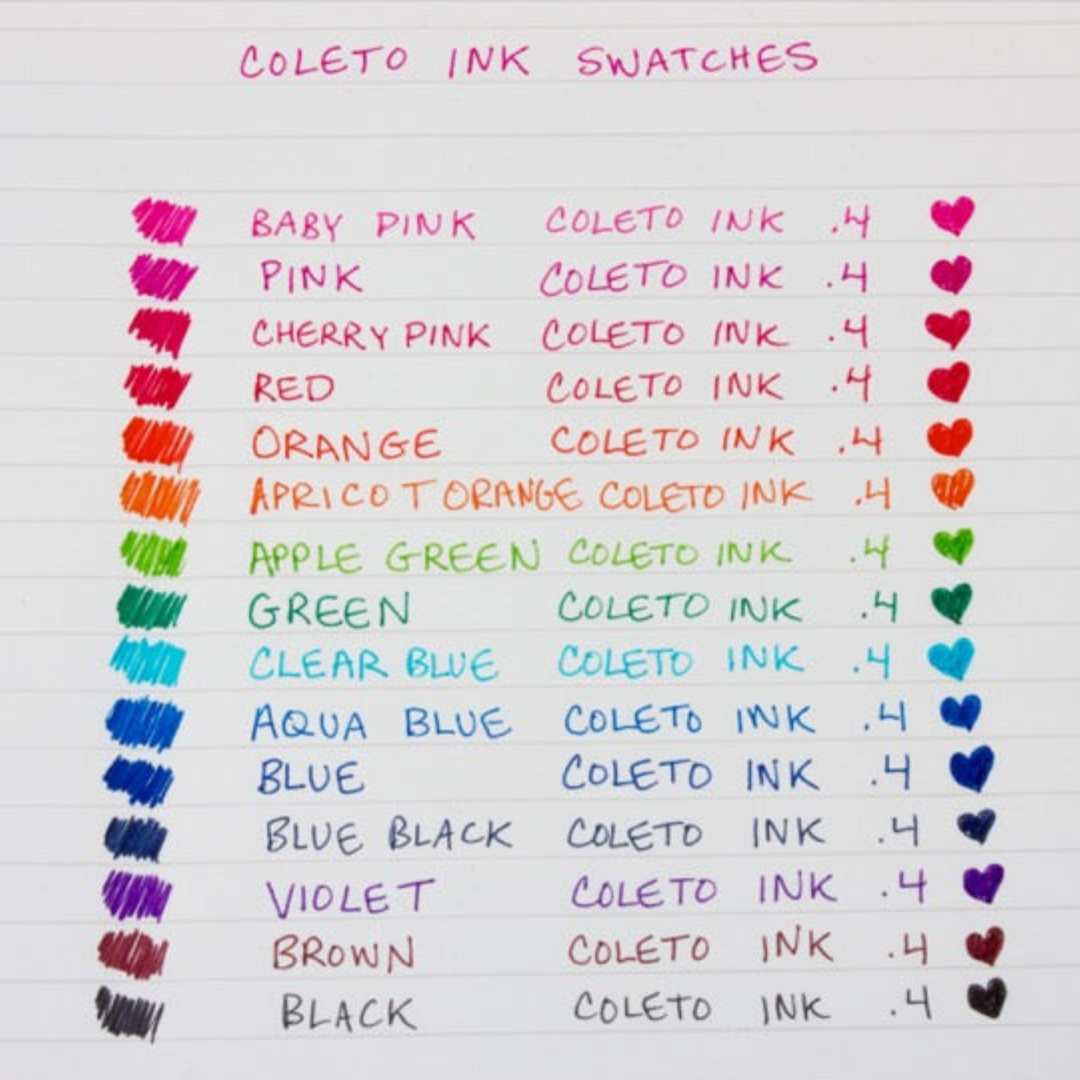 COLETO INK SWATCHES
BABY PINK COLETO INK .4
PINK COLETO INK .4
CHERRY PINK COLETO INK .4
RED COLETO INK .4
ORANGE COLETO INK .4
APRICOT ORANGE COLETO INK .4
APPLE GREEN COLETO INK .4
GREEN COLETO INK .4
CLEAR BLUE COLETO INK .4
AQUA BLUE COLETO INK .4
BLUE COLETO INK .4
BLUE BLACK COLETO INK .4
VIOLET COLETO INK .4
BROWN COLETO INK .4
BLACK COLETO INK .4